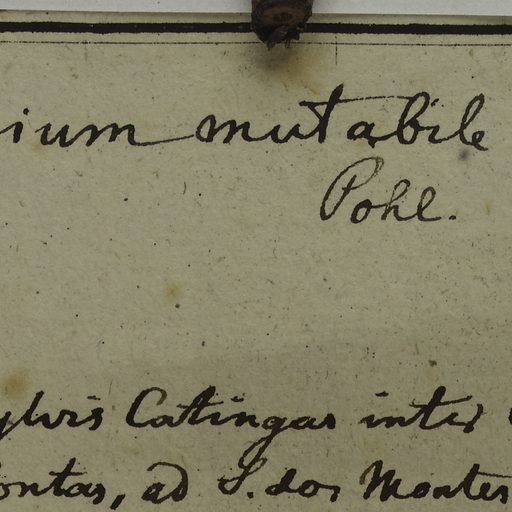 ium mutabile
Pohl.
ylvis Catingas inter
ontas, ad S. dos Montes